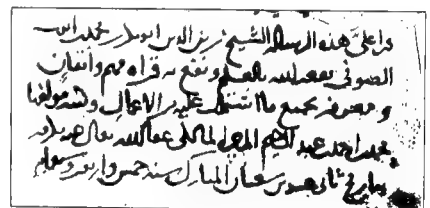 قرا علي هذه الرساله الشيخ زين الدين ابو بكر بن
الصوفي نفعه الله بالعلم ونفع به قراه فهم واتقان
ومعرفه بجميع ما اشتملت عليه من الاعمال وكتبه مولفها
محمد بن احمد بن عبد الرحيم المزي المالكي عفا الله تعالى عنه
بتاريخ ثاني شعبان المبارك سنه خمس واربعين وسبعمايه